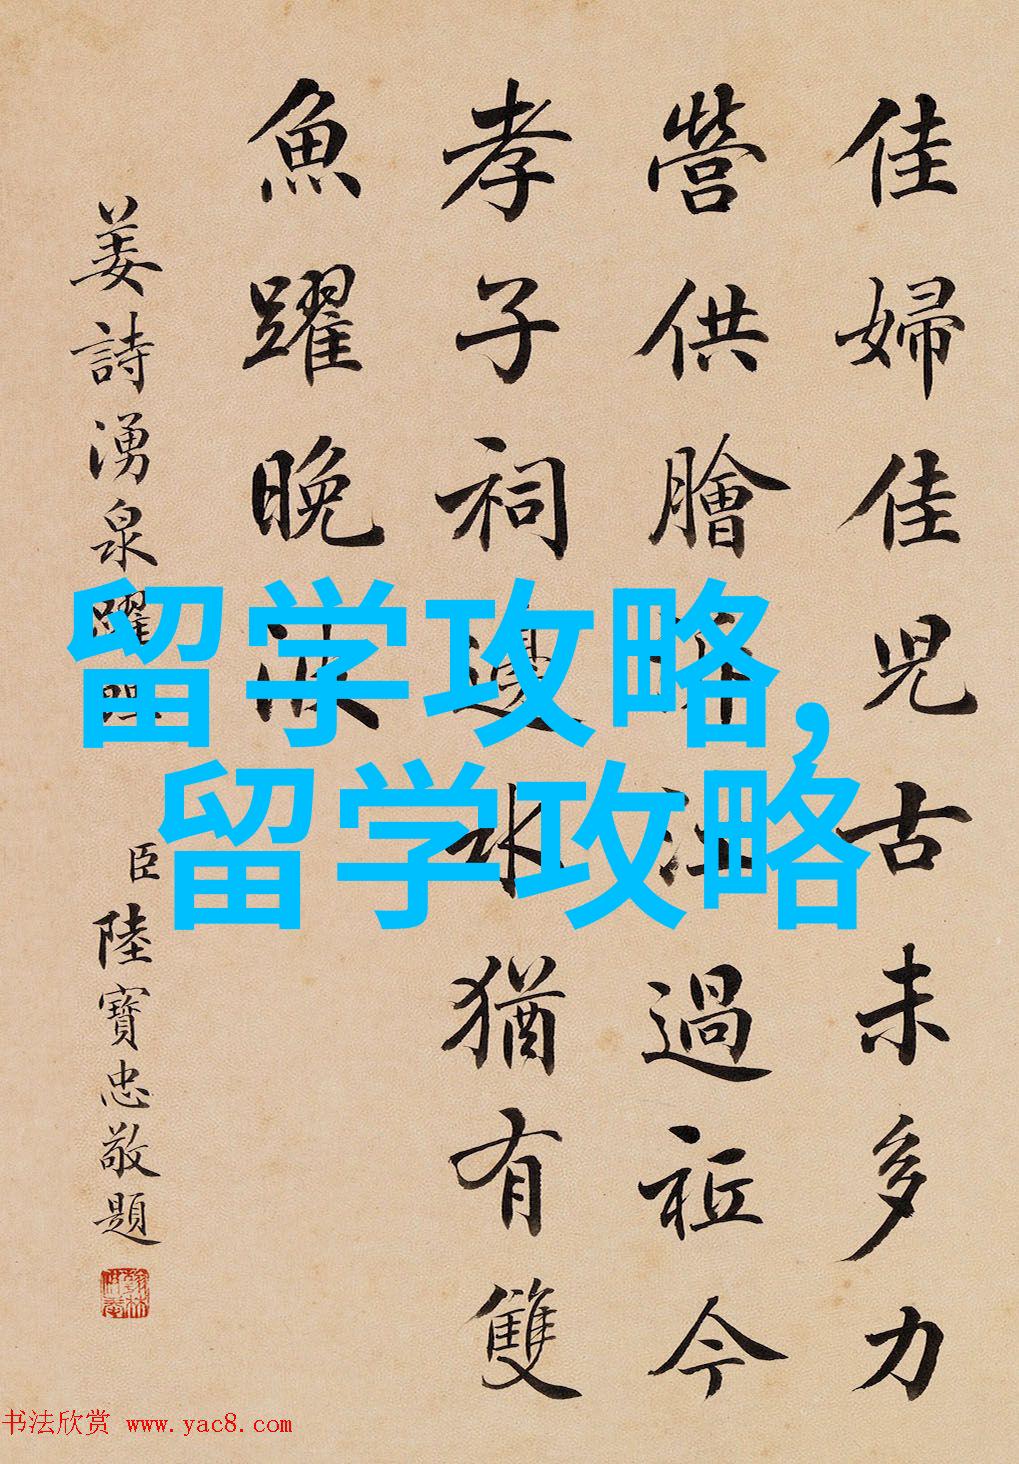 佳婦佳兒古未多力
營供膾江過祗今
孝子祠邊水猶有雙
魚躍晚波
姜詩湧泉躍鯉
臣陸寶忠敬題
留学攻略,
留学攻略
书法欣赏 www.yac8.com